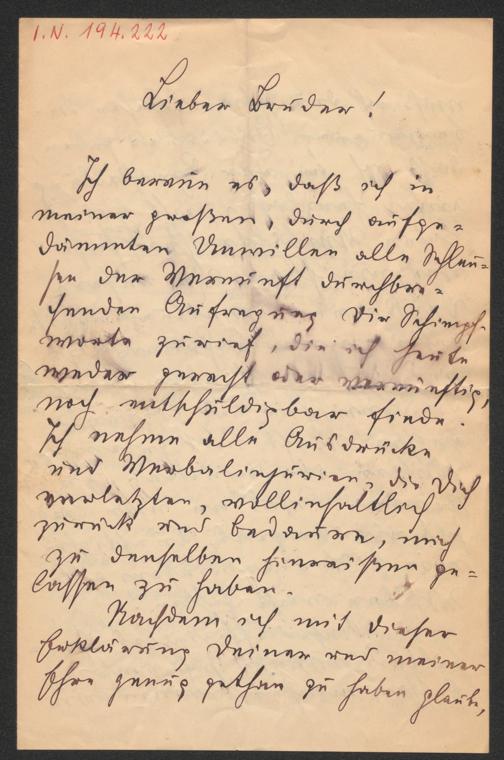 I.N. 194.222
Lieber Bruder!
Ich bereue es, daß ich in
meiner großen, durch aufge-
dämmten Unwillen alle Schleu-
sen der Vernunft durchbre-
chenden Aufregung Dir Schimpf-
worte zurief, die ich heute
weder gerecht oder vernünftig,
noch entschuldigbar finde.
Ich nehme alle Ausdrücke
und Verbalinjurien, die Dich
verletzten, vollinhaltlich
zurück und bedaure, mich
zu denselben hinreißen ge-
lassen zu haben.
Nachdem ich mit dieser
Erklärung Deiner und meiner
Ehre genug gethan zu haben glaube,